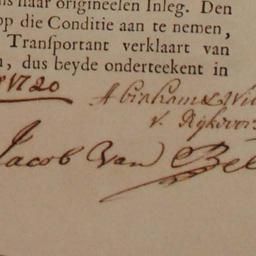 ns naar origineelen Inleg. Den
op die Conditie aan te nemen,
Transportant verklaart van
n, dus beyde onderteekent in
1720
Abraham
v.
Jacob Van Bel